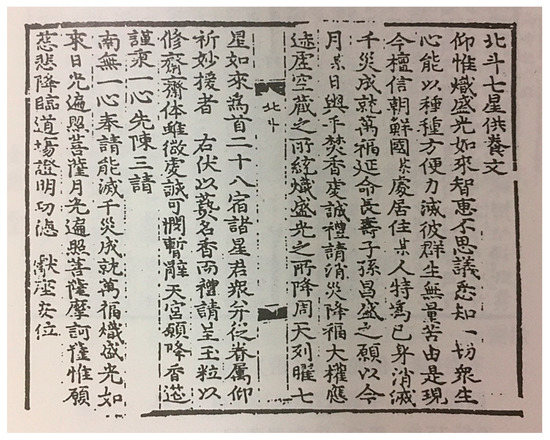 北斗七星供養文
仰惟熾盛光如來智惠不思議悉知一切衆生
心能以種種方便力滅彼群生無量苦由是現
今檀信朝鮮國某處居住某人特爲已身消滅
千災成就萬福延命長壽子孫昌盛之願以今
月某日與手焚香虔誠禮請消災降福大權應
迹虛空藏之所統熾盛光之所降周天列曜七
北斗
星如來爲首二十八宿諸星君衆并從眷属仰
祈妙援者 右伏以爇名香而禮請呈玉粒以
修齋齋体雖微虔誠可憫暫辭天宮願降香筵
謹秉一心先陳三請
南無一心奉請能滅千災成就萬福熾盛光如
來日光遍照菩薩月光遍照菩薩摩訶薩惟願
慈悲降臨道場證明功德 獻座安位